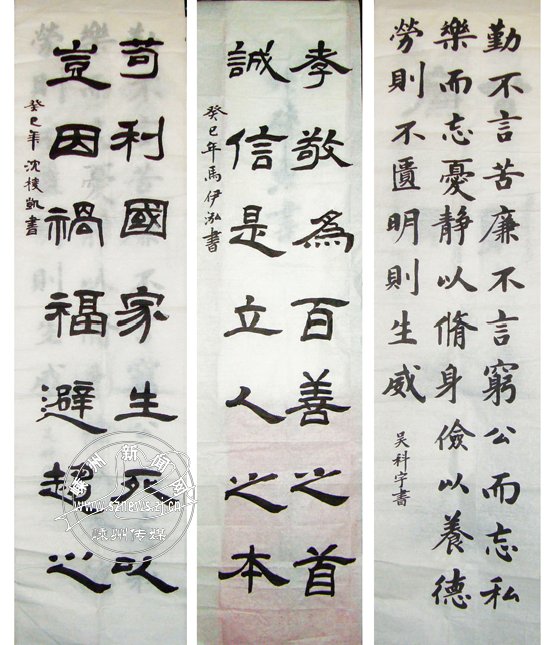 勤不言苦廉不言窮公而忘私
樂而忘憂静以脩身儉以養德
勞則不匱明則生威
吴科宇書
孝敬爲百善之首
誠信是立人之本
癸巳年馬伊泓書
苟利國家生死以
豈因禍福避趨之
癸巳年沈棱凱書
嵊州新闻网
www.sznews.zj.cn
嵊州传媒